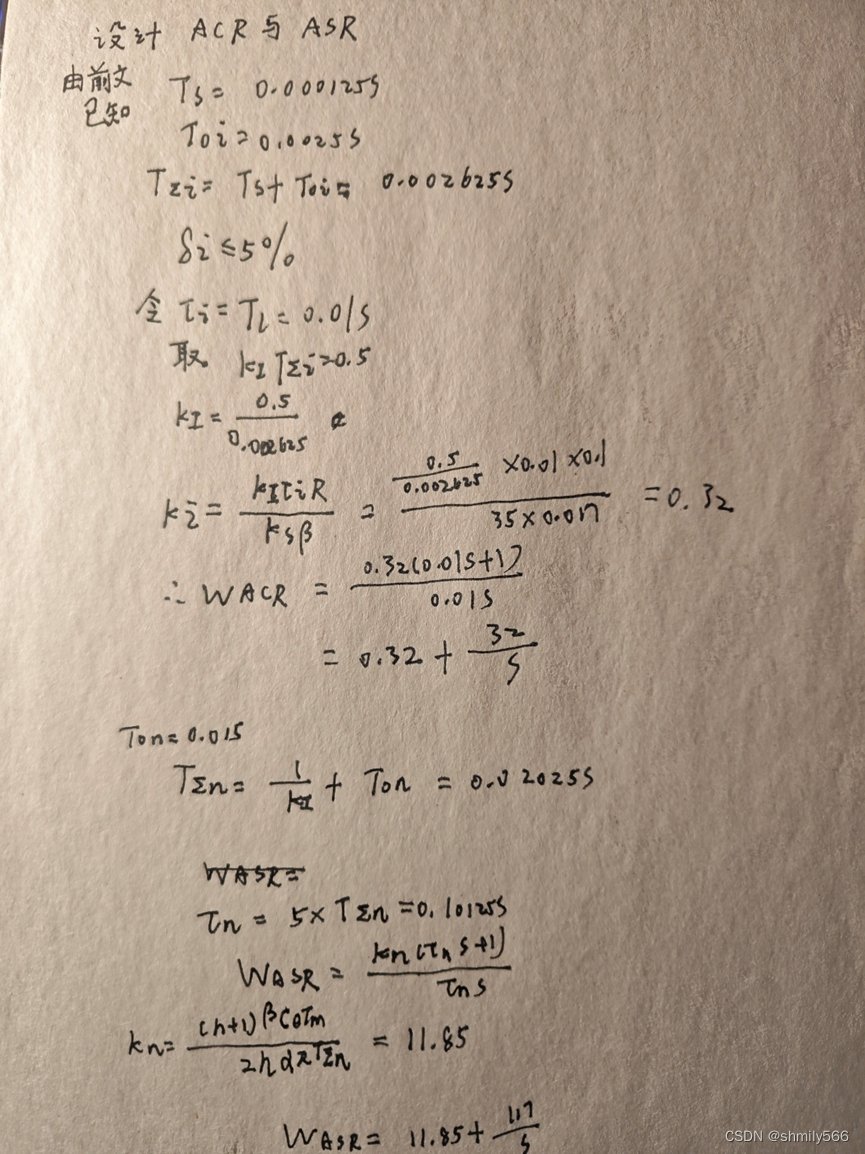 设计 ACR 与 ASR
由前文已知 Ts = 0.000125s
Toi = 0.0025s
TΣi = Ts + Toi = 0.002625s
δi ≤ 5%
令 τi = TL = 0.01s
取 kI TΣi = 0.5
kI = 0.5 / 0.002625
ki = kIτiR / ksβ = 0.5/0.002625 ×0.01 ×0.1 / 35×0.017 = 0.32
∴ WACR = 0.32(0.01s+1) / 0.01s
= 0.32 + 32/s
Ton = 0.01s
TΣn = 1/kI + Ton = 0.02025s
WASR =
τn = 5×TΣn = 0.10125s
WASR = kn(τns+1) / τns
kn = (h+1)βCeTm / 2hαRTΣn = 11.85
WASR = 11.85 + 117/s
CSDN @shmily566